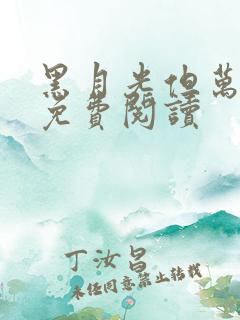 黑月光佔萬
免費閱讀
丁汝昌
未經同意禁止轉載